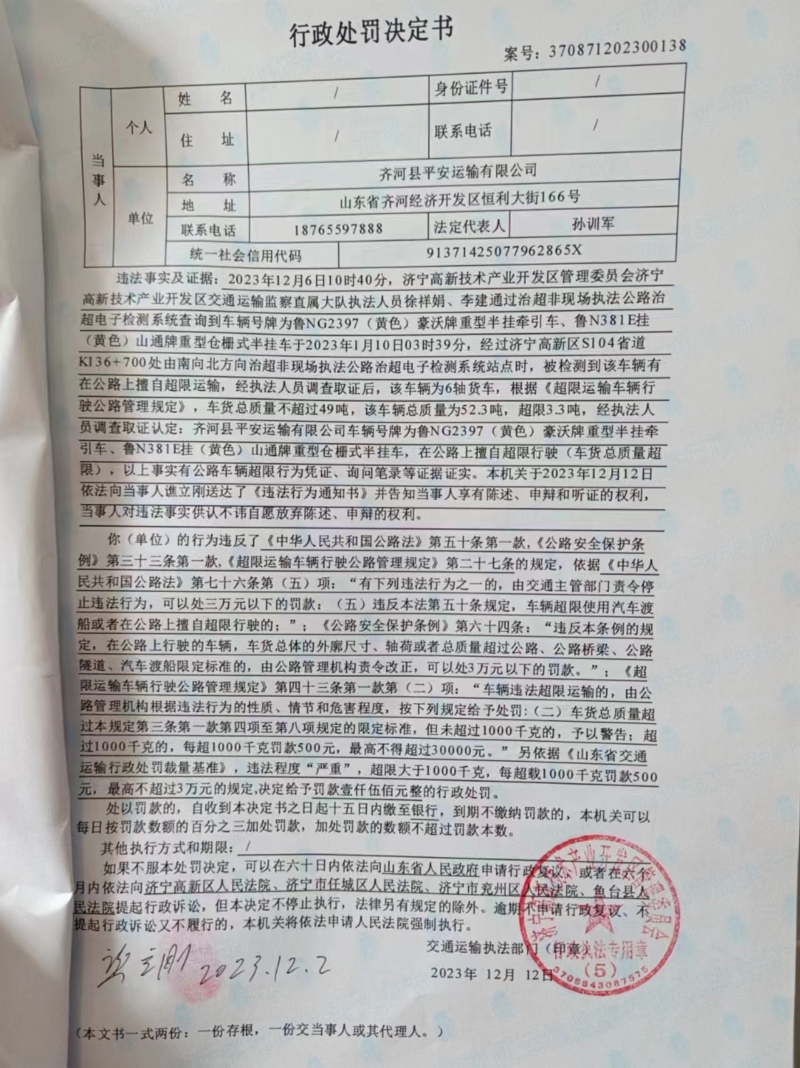 行政处罚决定书
案号：370871202300138
当事人
个人
姓 名
/
身份证件号
/
住 址
/
联系电话
/
单位
名 称
齐河县平安运输有限公司
地 址
山东省齐河经济开发区恒利大街166号
联系电话
18765597888
法定代表人
孙训军
统一社会信用代码
91371425077962865X
违法事实及证据：2023年12月6日10时40分，济宁高新技术产业开发区管理委员会济宁
高新技术产业开发区交通运输监察直属大队执法人员徐祥娟、李建通过治超非现场执法公路治
超电子检测系统查询到车辆号牌为鲁NG2397（黄色）豪沃牌重型半挂牵引车、鲁N381E挂
（黄色）山通牌重型仓栅式半挂车于2023年1月10日03时39分，经过济宁高新区S104省道
K136+700处由南向北方向治超非现场执法公路治超电子检测系统站点时，被检测到该车辆有
在公路上擅自超限运输，经执法人员调查取证后，该车辆为6轴货车，根据《超限运输车辆行
驶公路管理规定》，车货总质量不超过49吨，该车辆总质量为52.3吨，超限3.3吨，经执法人
员调查取证认定：齐河县平安运输有限公司车辆号牌为鲁NG2397（黄色）豪沃牌重型半挂牵
引车、鲁N381E挂（黄色）山通牌重型仓栅式半挂车，在公路上擅自超限行驶（车货总质量超
限），以上事实有公路车辆超限行为凭证、询问笔录等证据证实。本机关于2023年12月12日
依法向当事人谯立刚送达了《违法行为通知书》并告知当事人享有陈述、申辩和听证的权利，
当事人对违法事实供认不讳自愿放弃陈述、申辩的权利。
你（单位）的行为违反了《中华人民共和国公路法》第五十条第一款，《公路安全保护条
例》第三十三条第一款，《超限运输车辆行驶公路管理规定》第二十七条的规定，依据《中华人
民共和国公路法》第七十六条第（五）项：“有下列违法行为之一的，由交通主管部门责令停
止违法行为，可以处三万元以下的罚款：（五）违反本法第五十条规定，车辆超限使用汽车渡
船或者在公路上擅自超限行驶的；”；《公路安全保护条例》第六十四条：“违反本条例的规
定，在公路上行驶的车辆，车货总体的外廓尺寸、轴荷或者总质量超过公路、公路桥梁、公路
隧道、汽车渡船限定标准的，由公路管理机构责令改正，可以处3万元以下的罚款。”；《超
限运输车辆行驶公路管理规定》第四十三条第一款第（二）项：“车辆违法超限运输的，由公
路管理机构根据违法行为的性质、情节和危害程度，按下列规定给予处罚：（二）车货总质量超
过本规定第三条第一款第四项至第八项规定的限定标准，但未超过1000千克的，予以警告；超
过1000千克的，每超1000千克罚款500元，最高不得超过30000元。”另依据《山东省交通
运输行政处罚裁量基准》，违法程度“严重”，超限大于1000千克，每超载1000千克罚款500
元，最高不超过3万元的规定，决定给予罚款壹仟伍佰元整的行政处罚。
处以罚款的，自收到本决定书之日起十五日内缴至银行，到期不缴纳罚款的，本机关可以
每日按罚款数额的百分之三加处罚款，加处罚款的数额不超过罚款本数。
其他执行方式和期限：/
如果不服本处罚决定，可以在六十日内依法向山东省人民政府申请行政复议，或者在六个
月内依法向济宁高新区人民法院、济宁市任城区人民法院、济宁市兖州区人民法院、鱼台县人
民法院提起行政诉讼，但本决定不停止执行，法律另有规定的除外。逾期不申请行政复议、不
提起行政诉讼又不履行的，本机关将依法申请人民法院强制执行。
交通运输执法部门（印章）
2023年 12月 12日
行政执法专用章
（5）
3708843087575
谯立刚 2023.12.2
（本文书一式两份：一份存根，一份交当事人或其代理人。）